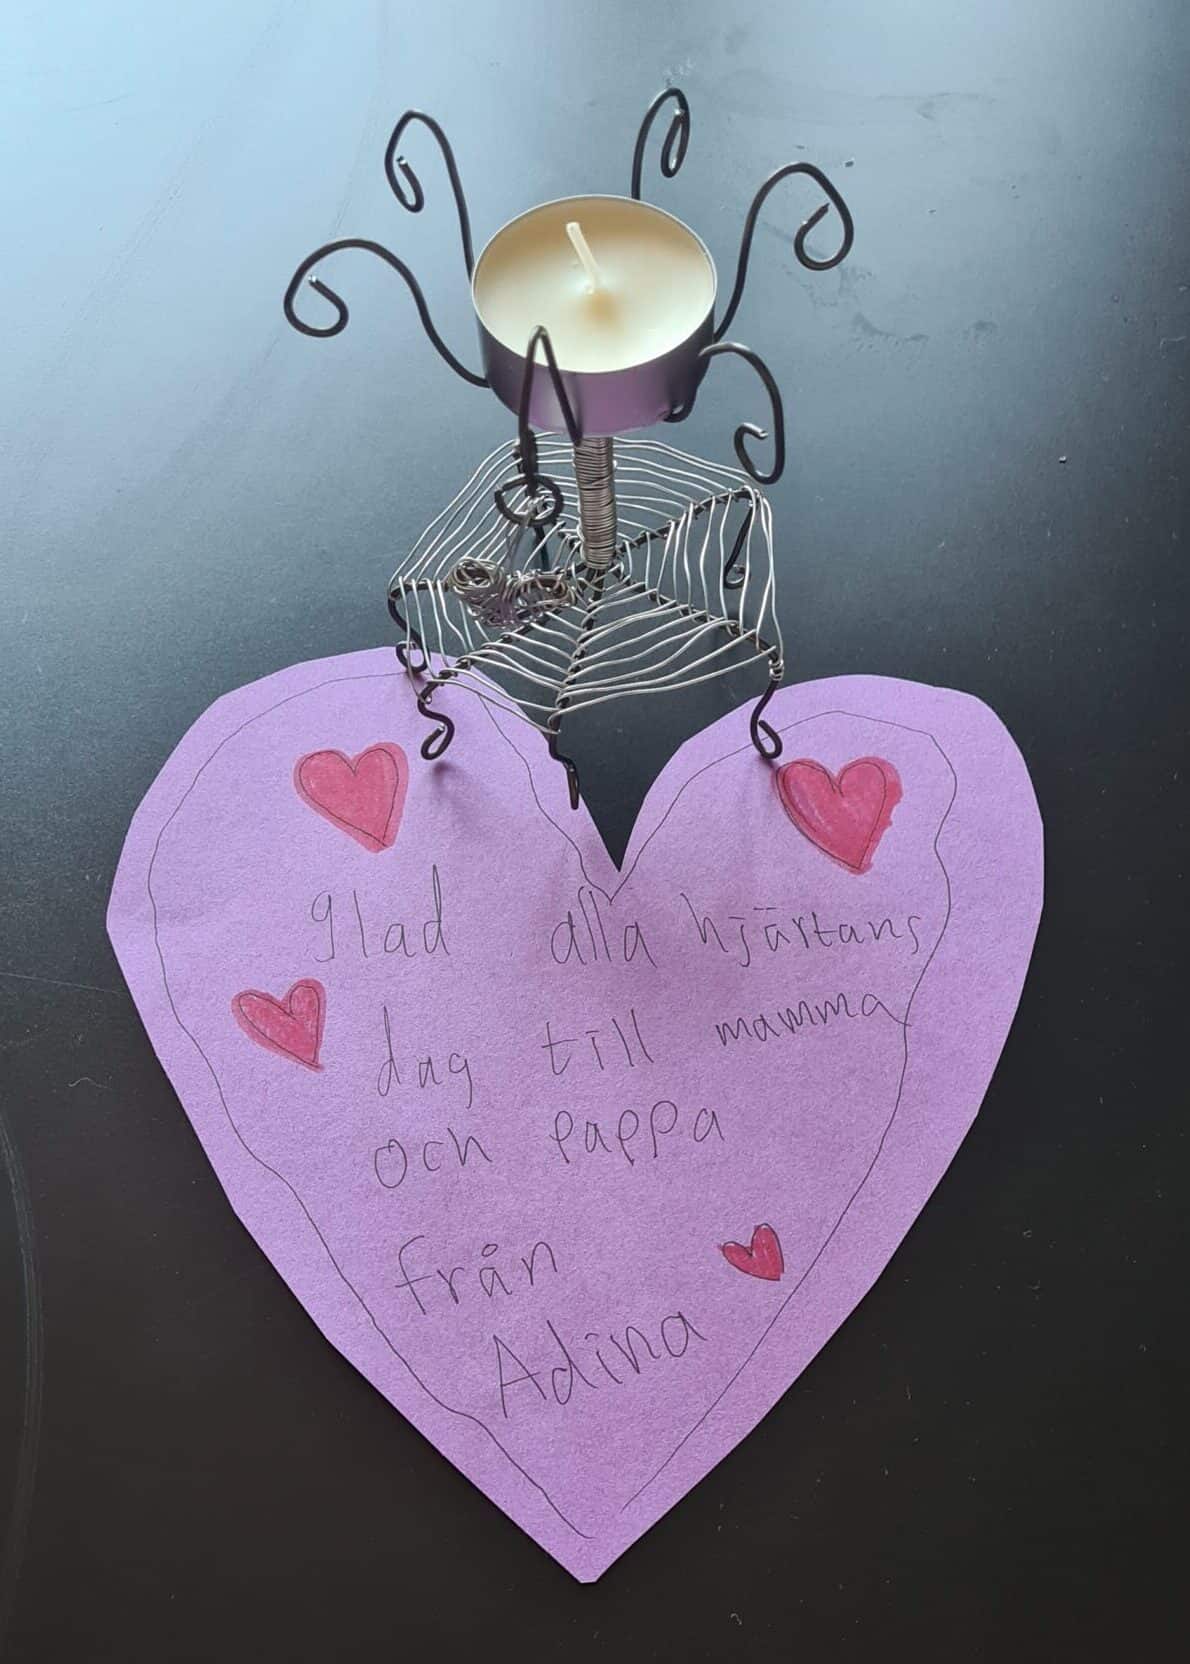 glad alla hjärtans
dag till mamma
och pappa
från
Adina